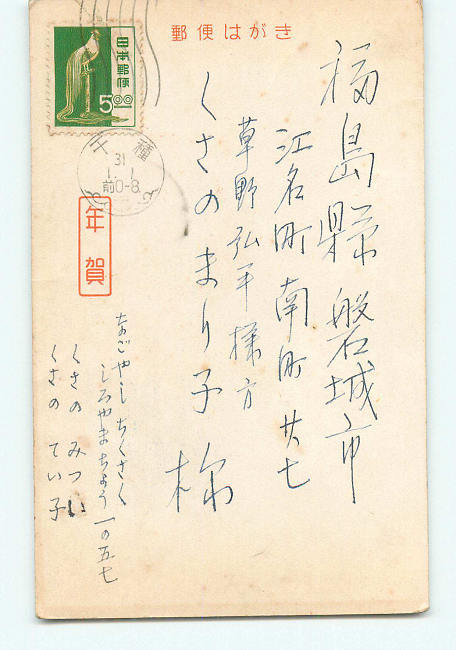 郵便はがき
日本郵便
5.00
千種
31
1.1
前0-8
年賀
福島縣磐城市
江名町南町廿七
草野弘平様方
くさのまり子様
なごやしちくさく
しろやまちよう一の五七
くさのみつい
くさのてい子